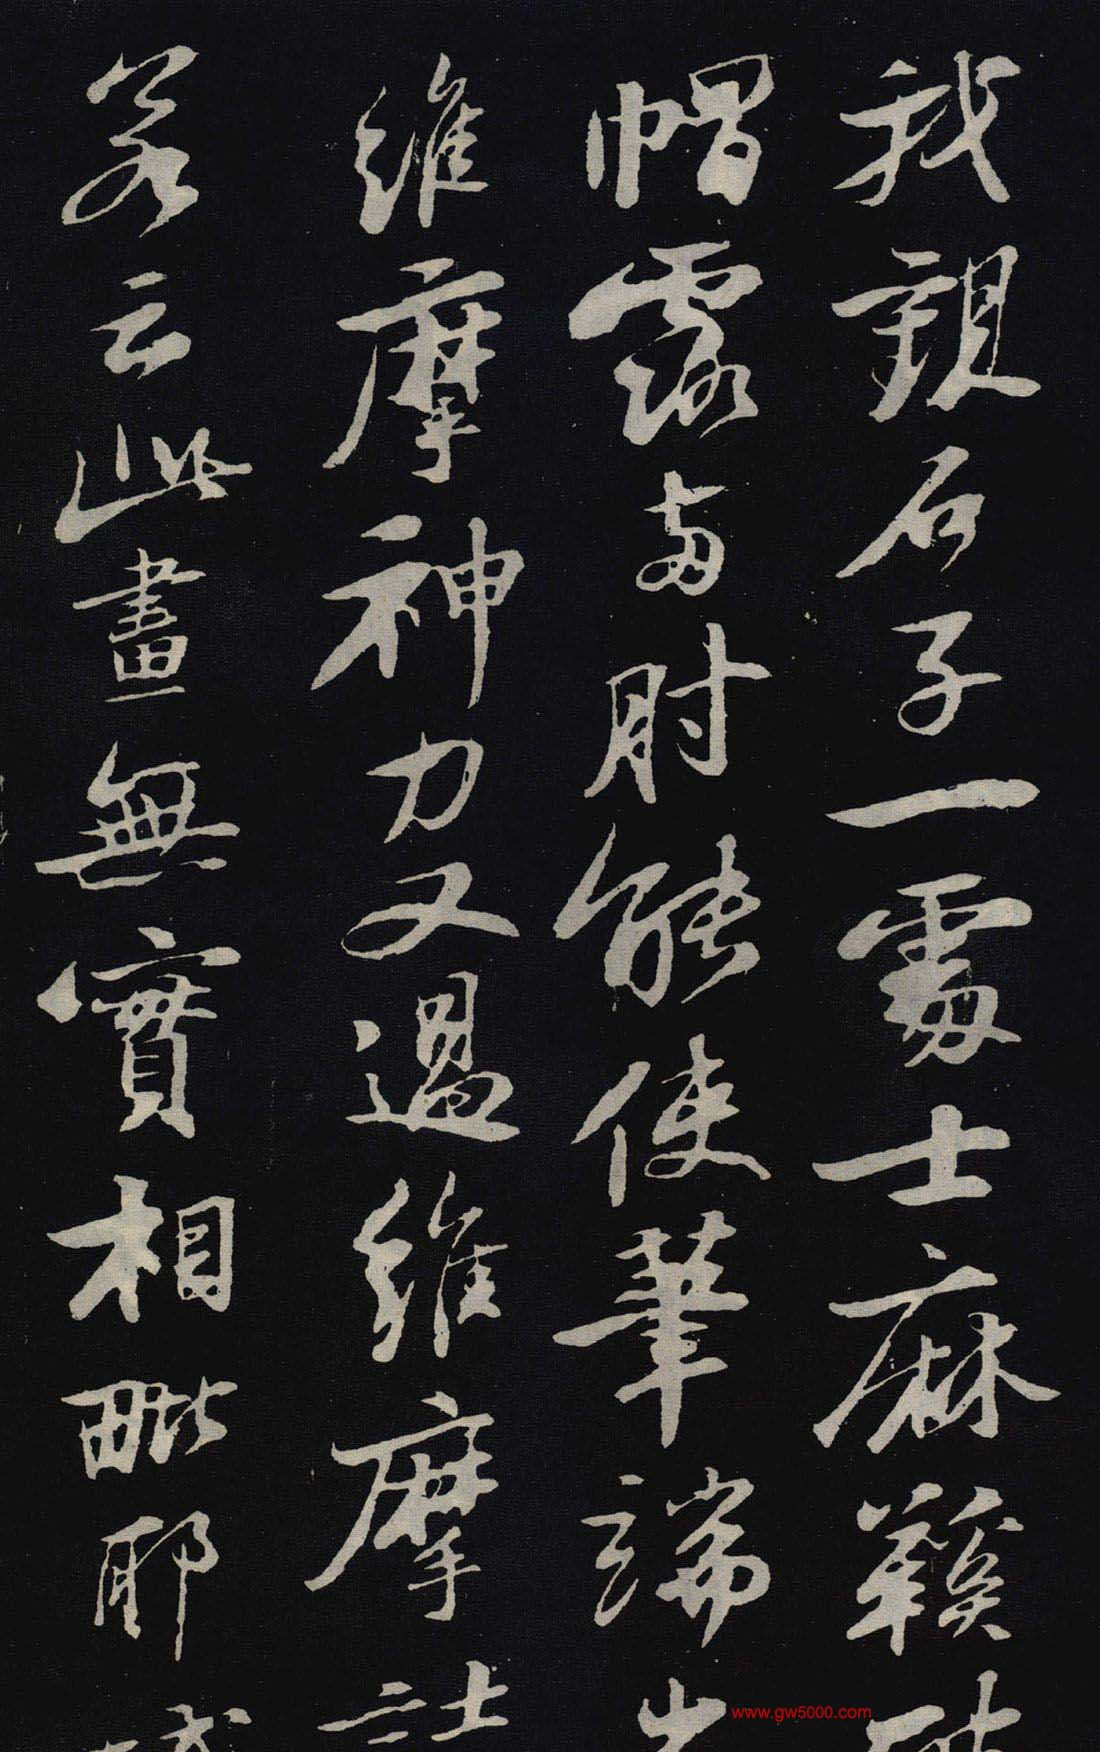 我觀石子一處士麻鞵破
帽露兩肘能使筆端出
維摩神力又過維摩詰
若云此畫無實相毗耶城
www.gw5000.com